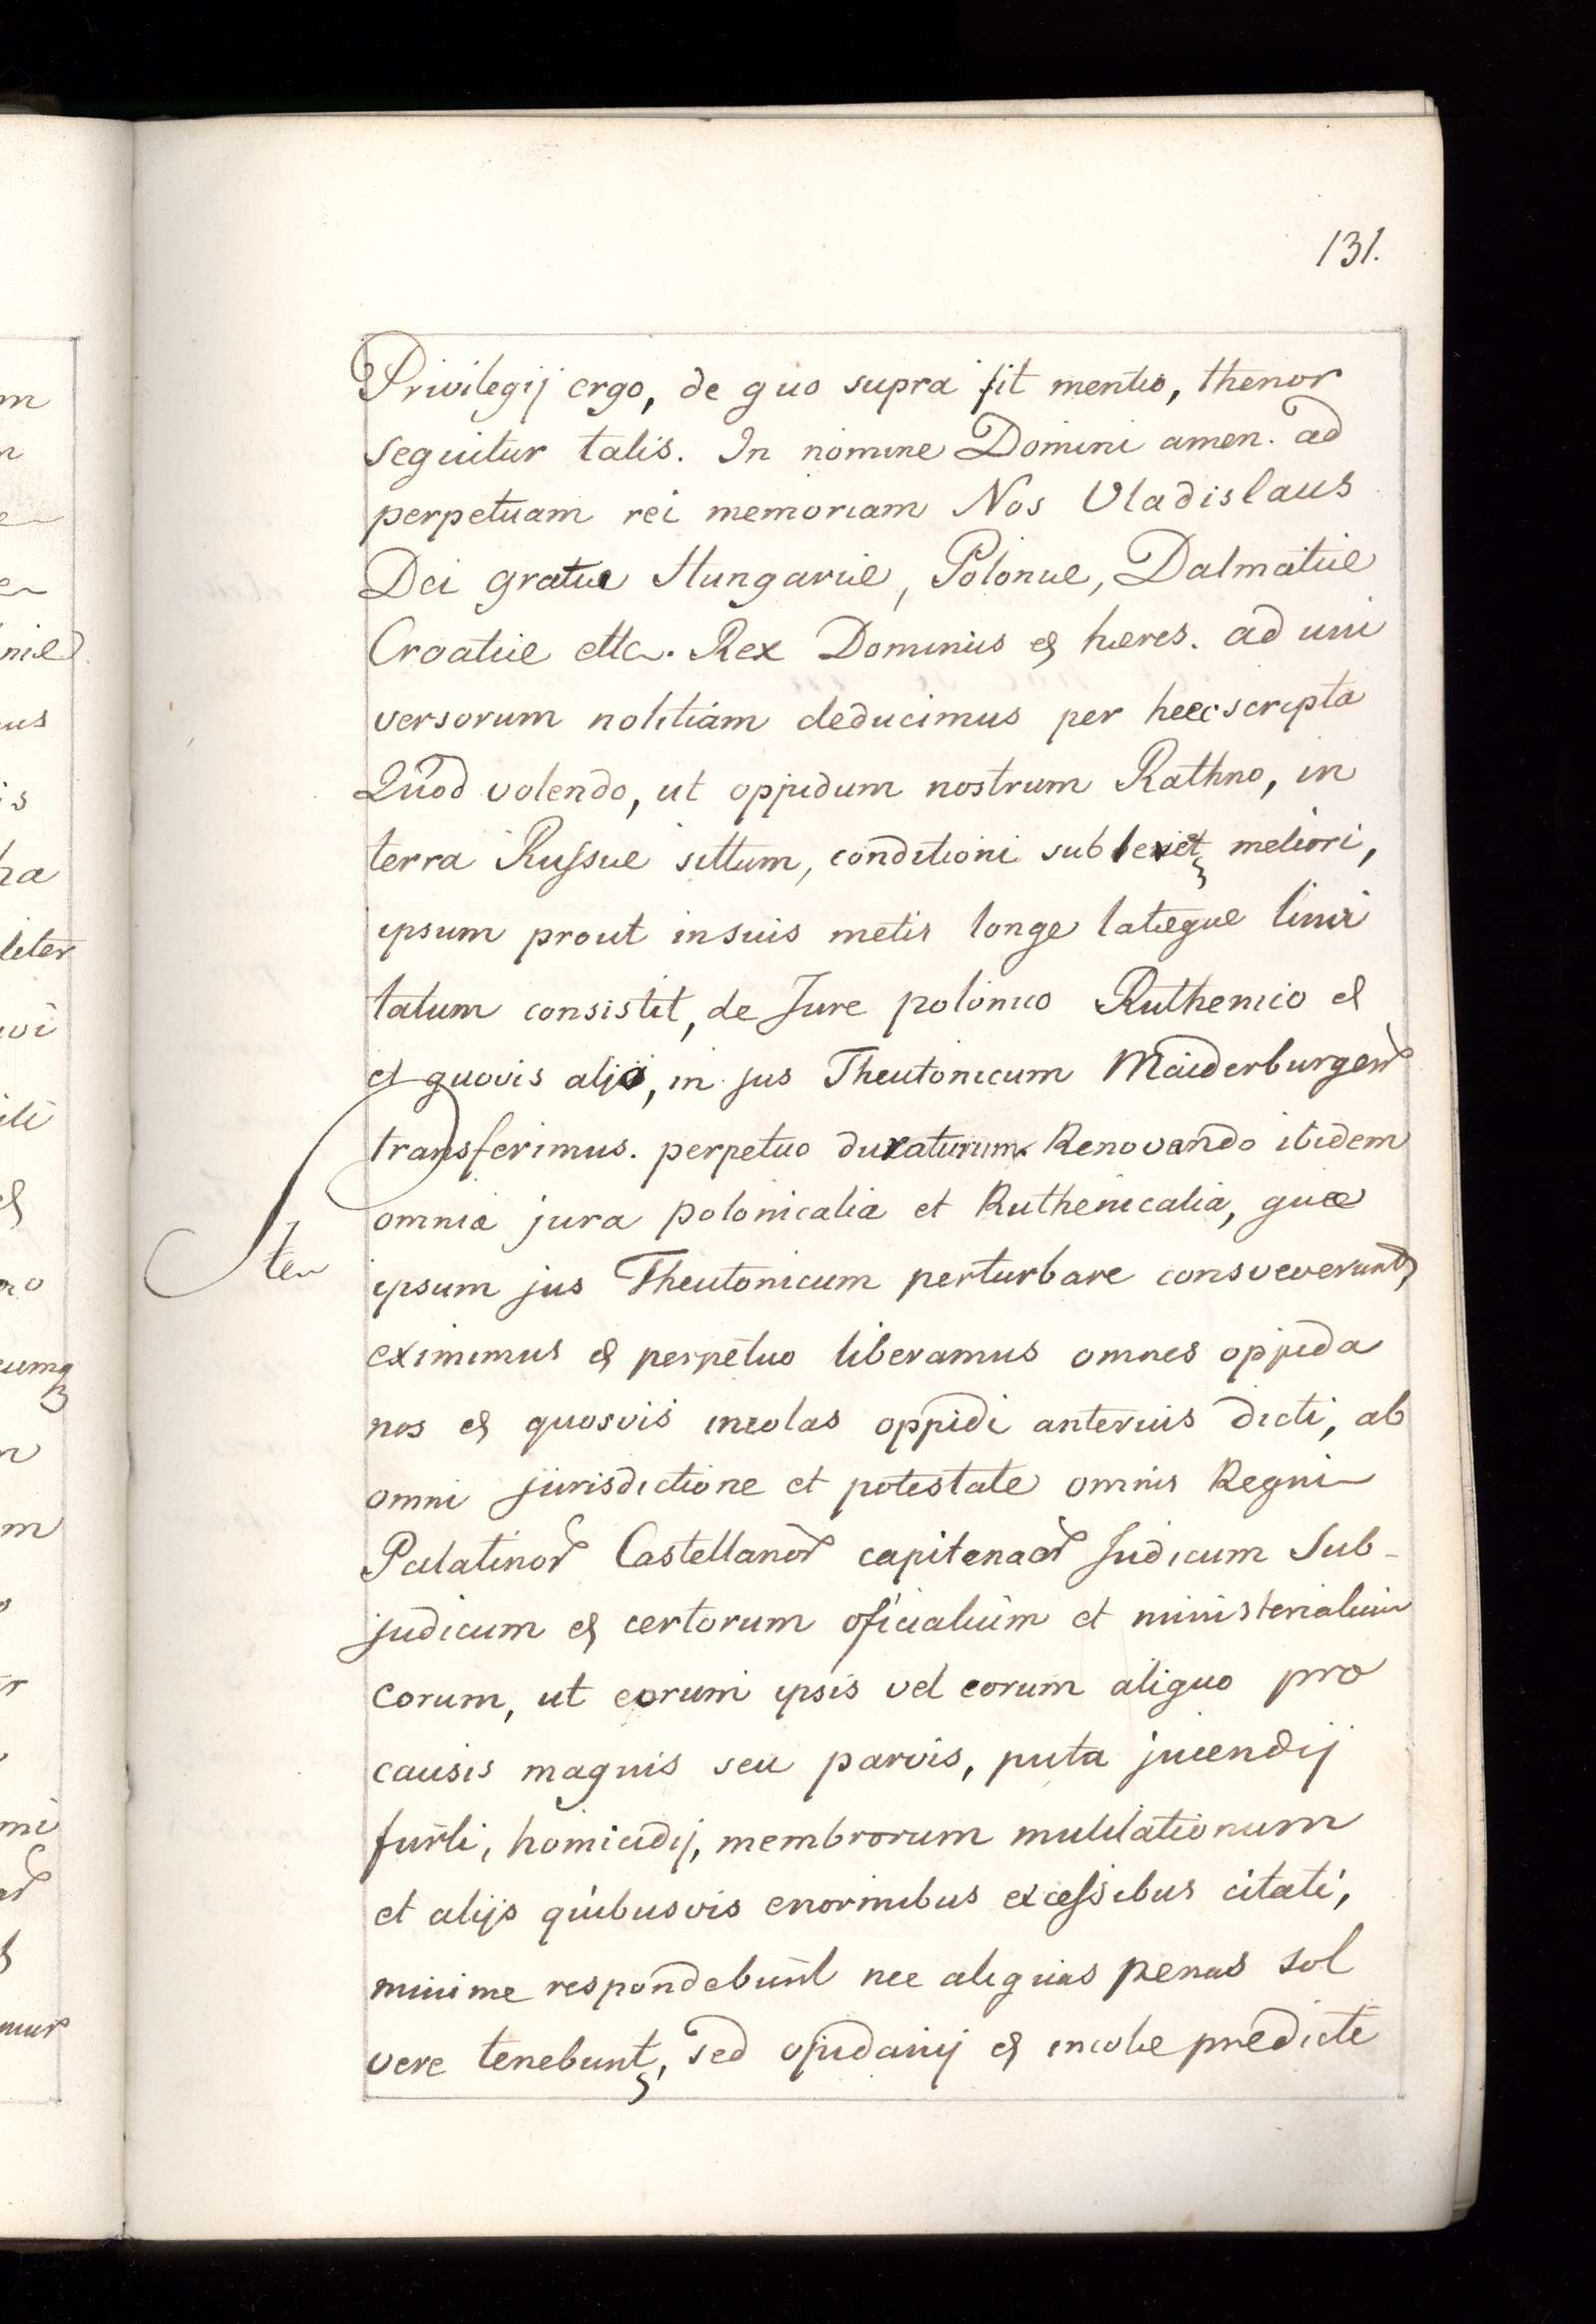 131.
Privilegij ergo, de quo supra fit mentio, thenor
sequitur talis. In nomine Domini amen. ad
perpetuam rei memoriam Nos Vladislaus
Dei gratiæ Hungariæ, Poloniæ, Dalmatiæ
Croatiæ ettc. Rex Dominus et hæres. ad uni
versorum notitiam deducimus per heec scripta
Quod volendo, ut oppidum nostrum Rathno, in
terra Russiæ sittum, conditioni sublevet meliori,
ipsum prout in suis metis longe latæque limi
tatum consistit, de Jure polonico Ruthenico et
et quovis aljo, in jus Theutonicum Maiderburgen
transferimus. perpetuo duraturum. Renovando ibidem
omnia jura polonicalia et Ruthenicalia, quæ
ipsum jus Theutonicum perturbare consveverunt,
Iten
eximimus et perpetuo liberamus omnes oppida
nos et quosvis incolas oppidi anterius dicti, ab
omni jurisdictione et potestate omnis Regni
Palatinor Castellanor capitenaor Judicum Sub-
judicum et certorum oficialium et ministerialium
eorum, ut eorum ipsis vel eorum aliquo pro
causis magnis seu parvis, puta jncendij
furti, homicidij, membrorum mutilationum
et alijs quibusvis enormibus excessibus citati,
minime respondebunt nec aliquas penas sol
vere tenebunt, sed opidanij et incolæ predicte